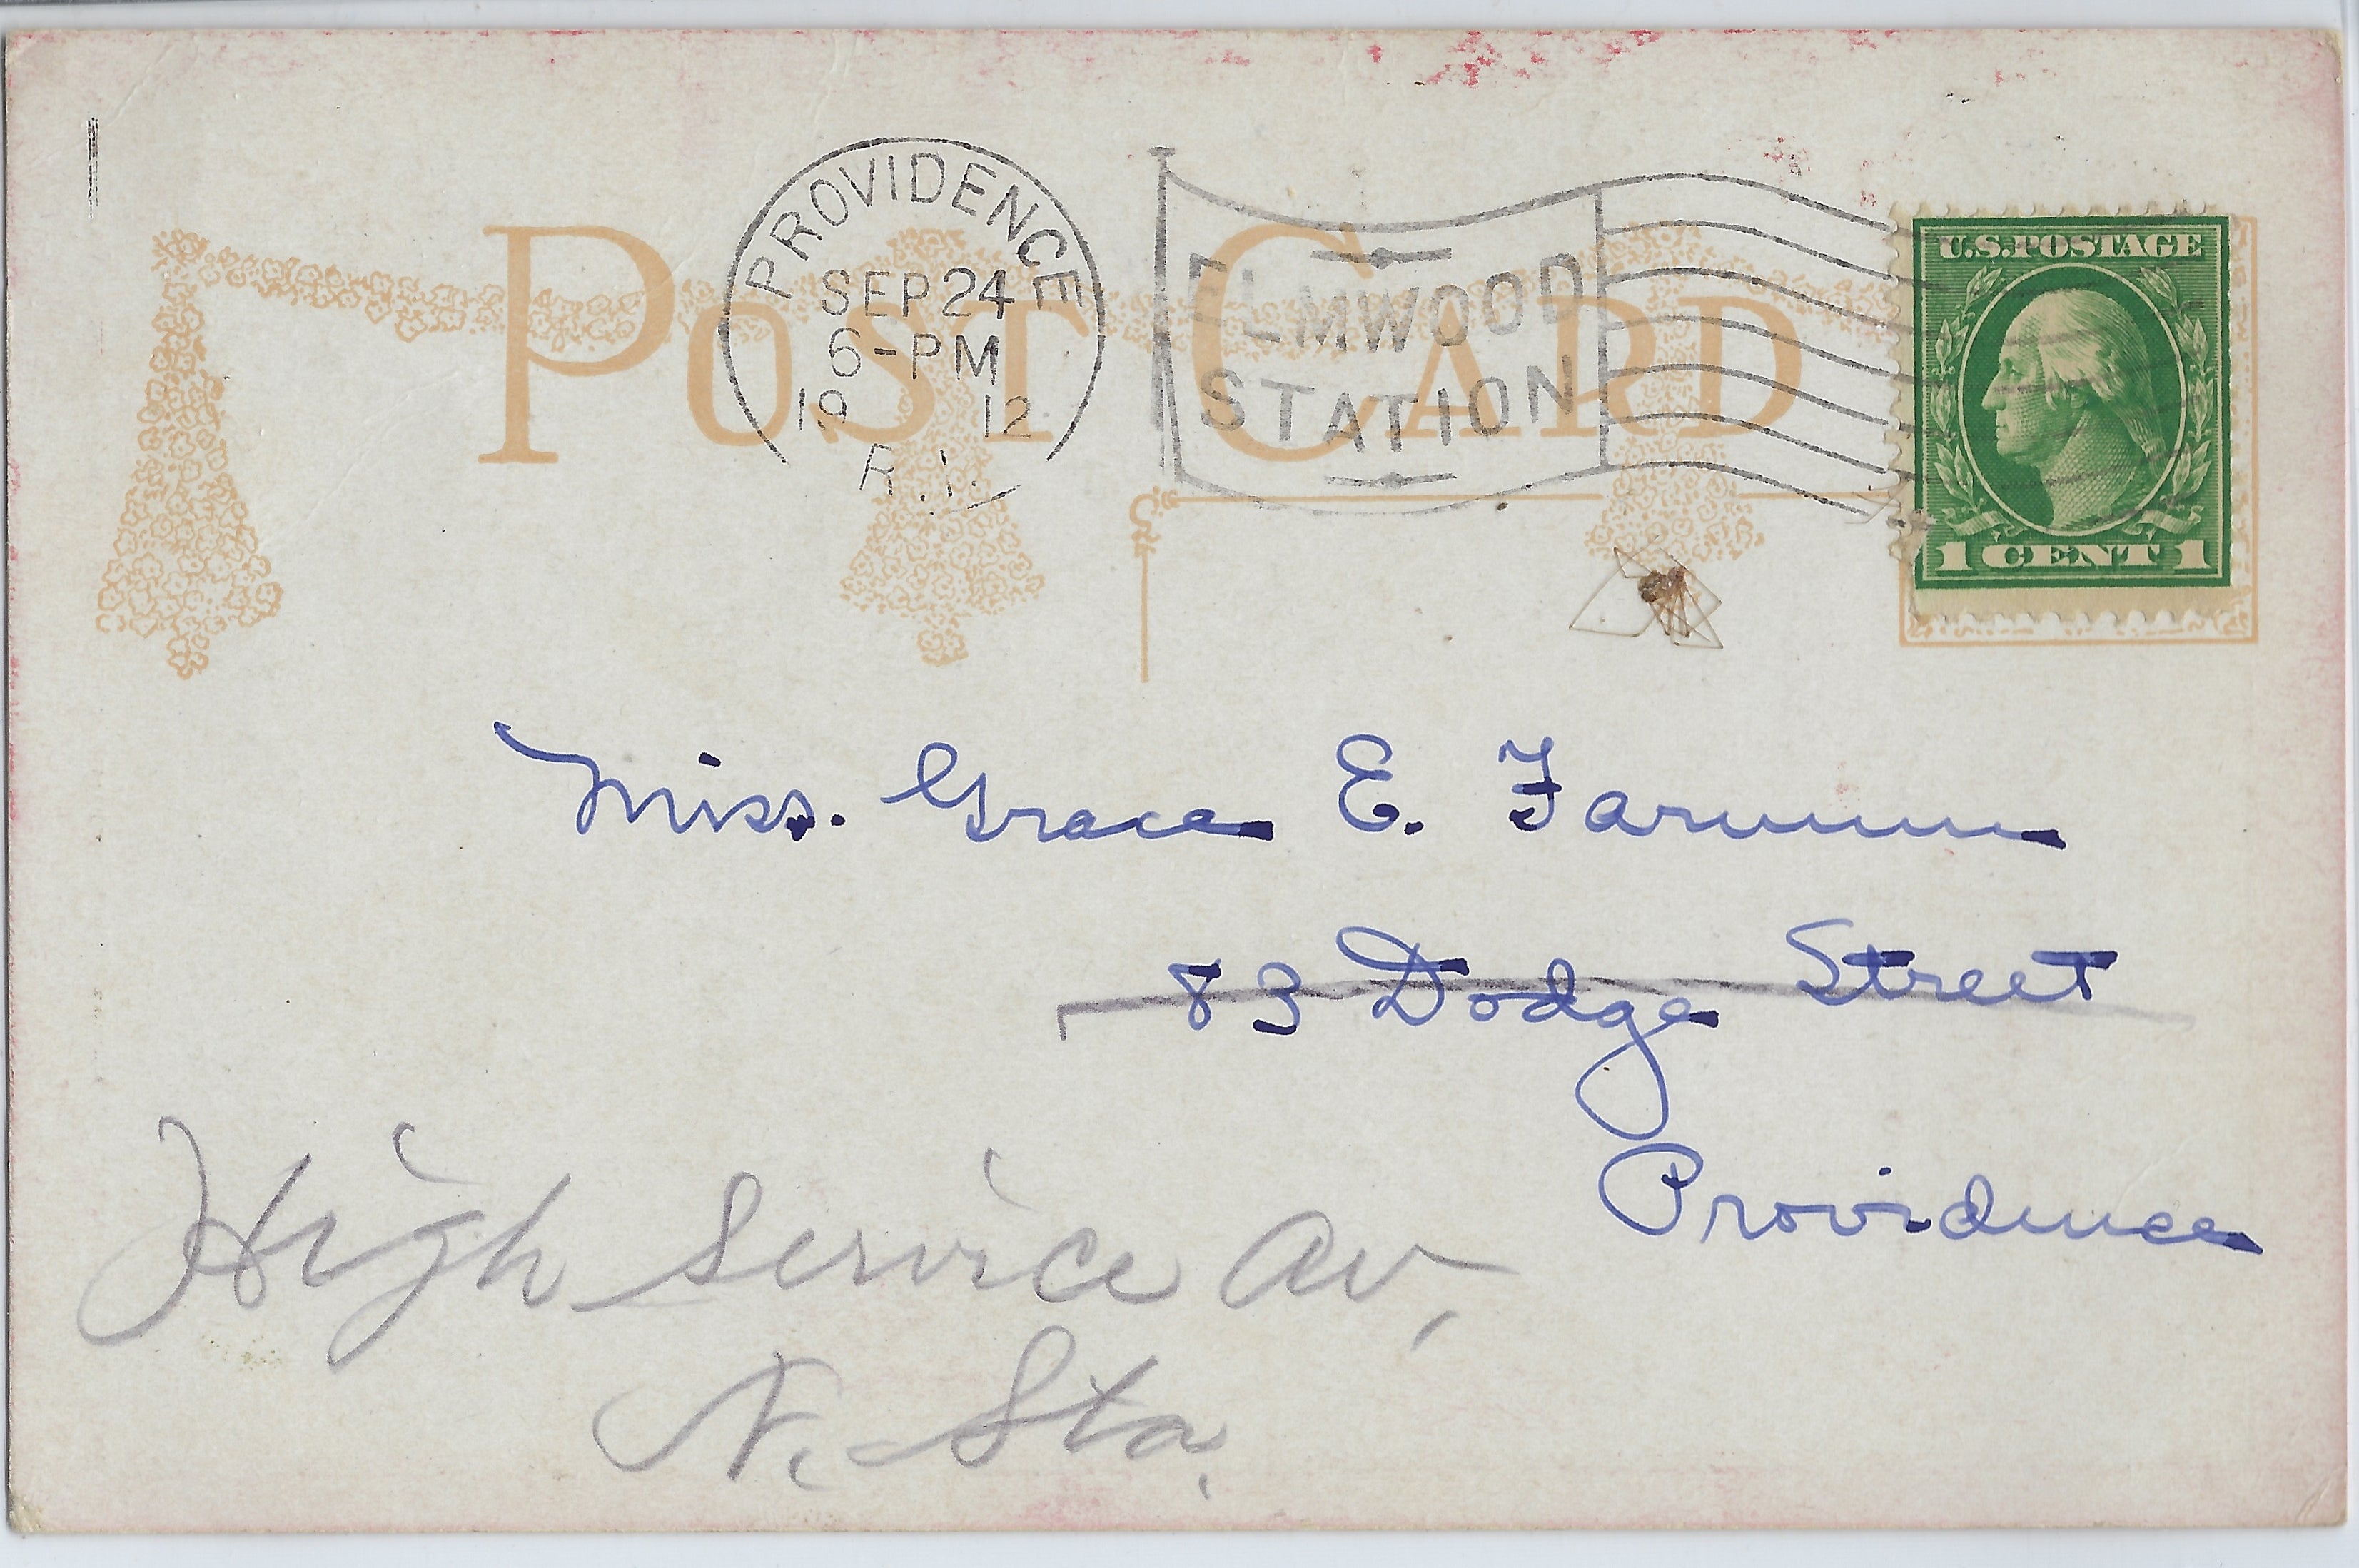 PROVIDENCE
SEP 24
6-PM
19 12
R.I.
ELMWOOD
STATION
POST CARD
U.S. POSTAGE
1 CENT 1
Miss. Grace E. Farnum
83 Dodge Street
Providence
High Service Av,
N. Sta.